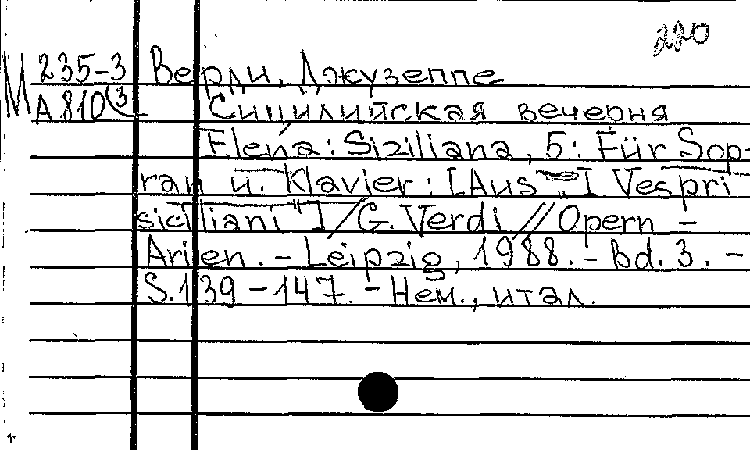 220
М 235-3 Верди, Джузеппе
А810(3 Сицилийская вечерня
Elena: Siziliana, 5: Für Sop-
ran u. Klavier: [Aus "I Vespri
siciliani"] / G. Verdi // Opern -
Arien. - Leipzig, 1988. - Bd. 3. -
S. 139 - 147. - Нем., итал.